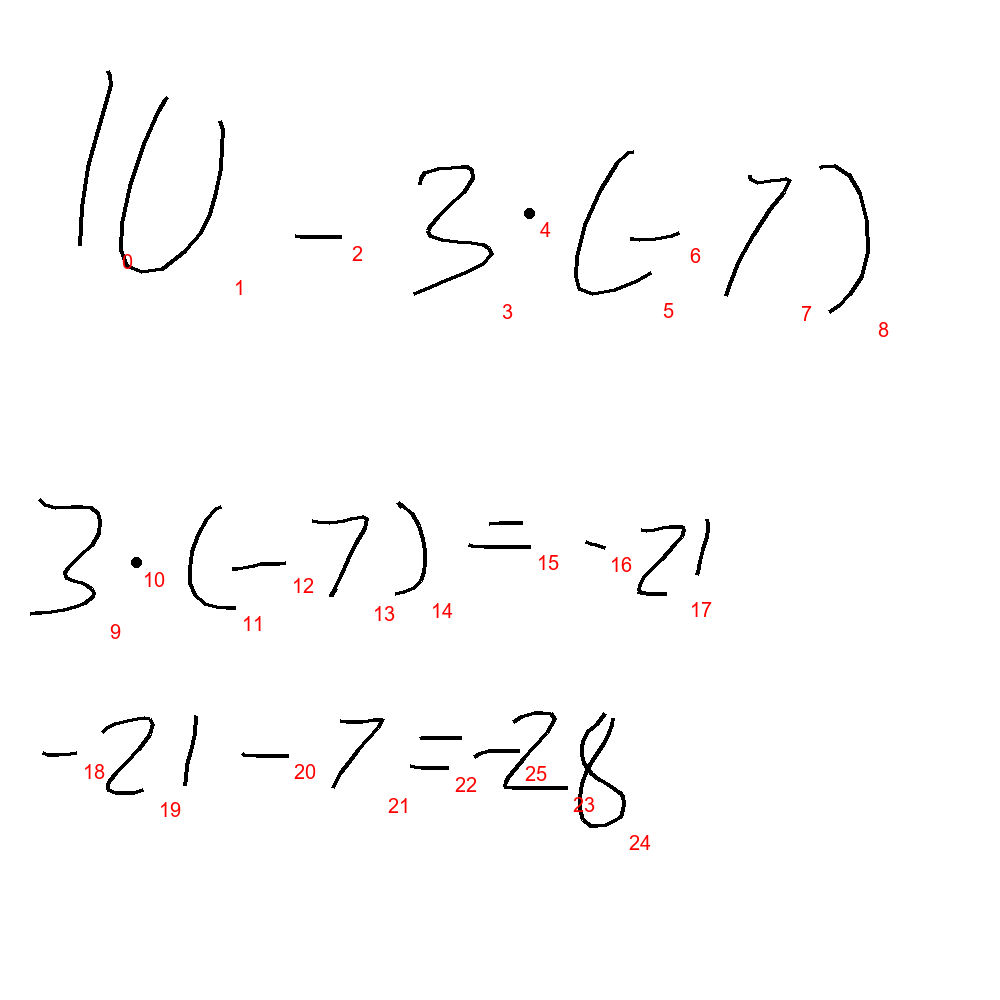 10 - 3 · (-7)
0 1 2 3 4 5 6 7 8
3 · (-7) = -21
9 10 11 12 13 14 15 16 17
-21 - 7 = -28
18 19 20 21 22 25 23 24